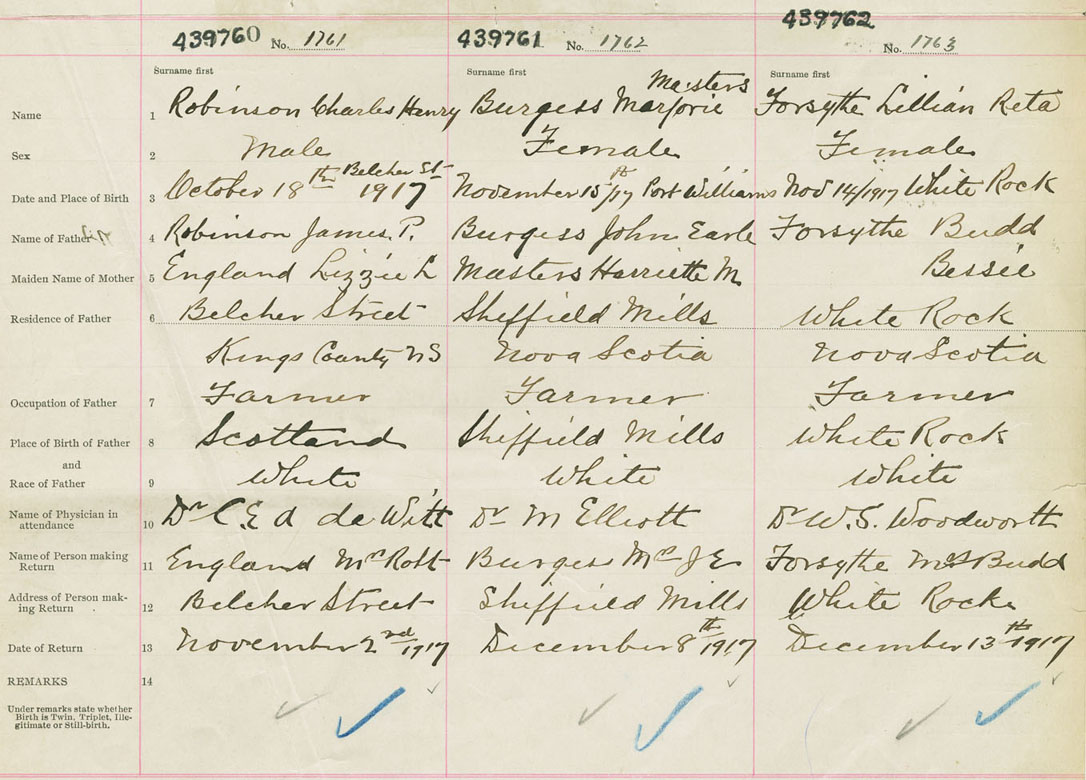 439760 No. 1761 439761 No. 1762 439762 No. 1763
Surname first Surname first Surname first
Masters
Name 1 Robinson Charles Henry Burgess Marjorie Forsythe Lillian Reta
Sex 2 Male Female Female
Belcher St
Date and Place of Birth 3 October 18th 1917 November 15th/17 Port Williams Nov 14/1917 White Rock
Name of Father 4 Robinson James P. Burgess John Earle Forsythe Budd
Maiden Name of Mother 5 England Lizzie L Masters Harriette M. Bessie
Residence of Father 6 Belcher Street Sheffield Mills White Rock
Kings County NS Nova Scotia Nova Scotia
Occupation of Father 7 Farmer Farmer Farmer
Place of Birth of Father 8 Scotland Sheffield Mills White Rock
and
Race of Father 9 White White White
Name of Physician in
attendance 10 Dr C. E. A de Witt Dr M Elliott Dr W. S. Woodworth
Name of Person making
Return 11 England Mrs Robt Burgess Mrs J E Forsythe Mrs Budd
Address of Person mak-
ing Return 12 Belcher Street Sheffield Mills White Rock
Date of Return 13 November 2nd 1917 December 8th 1917 December 13th 1917
REMARKS 14
Under remarks state whether
Birth is Twin, Triplet, Ille-
gitimate or Still-birth.